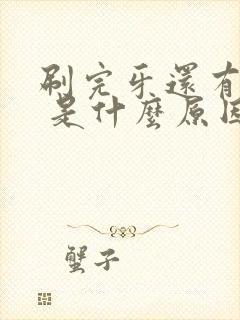 刷完牙還有
是什麼原因
蟹子